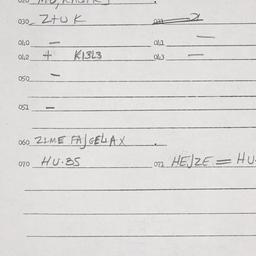 030 ZTUK
040 — 041 —
042 + K13L3 043 —
050 —
051 —
060 ZIME FAJGELJAX
070 HU.BS 071 HEJZE = HU